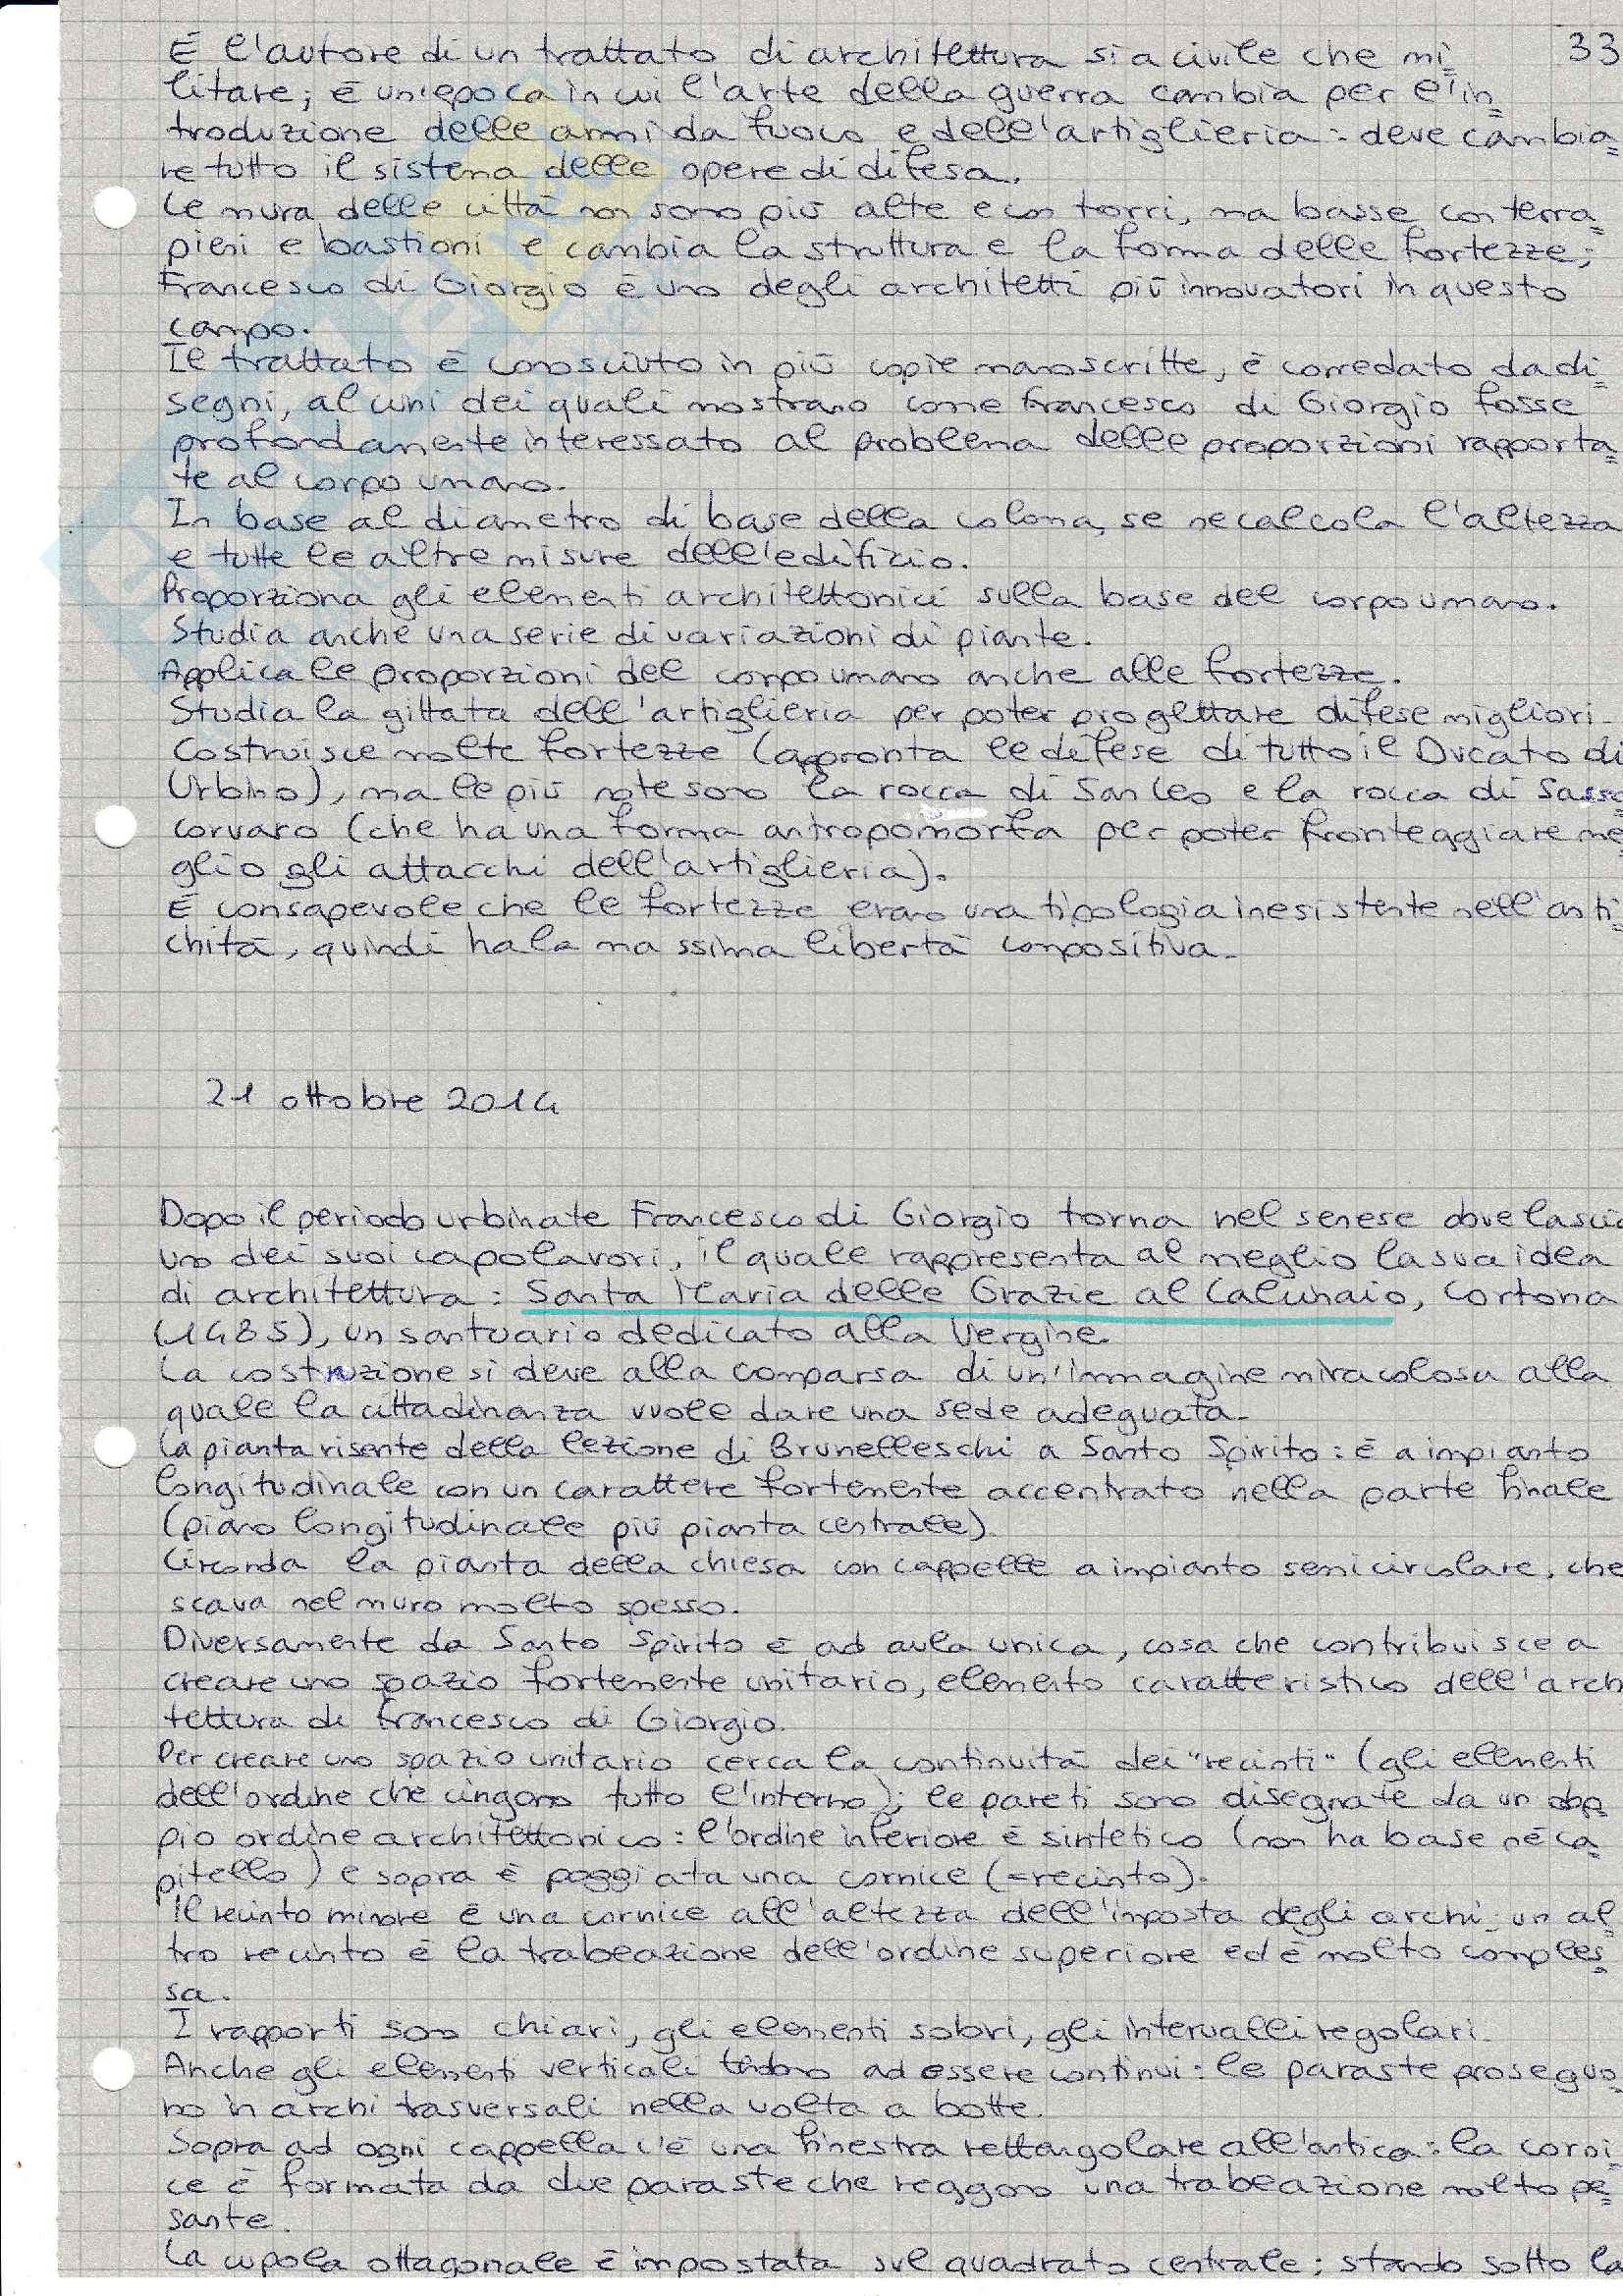 33
È l'autore di un trattato di architettura sia civile che mi=
litare; è un'epoca in cui l'arte della guerra cambia per l'in=
troduzione delle armi da fuoco e dell'artiglieria: deve cambia=
re tutto il sistema delle opere di difesa.
Le mura delle città non sono più alte e con torri, ma basse con terra=
pieni e bastioni e cambia la struttura e la forma delle fortezze;
Francesco di Giorgio è uno degli architetti più innovatori in questo
campo.
Il trattato è conosciuto in più copie manoscritte, è corredato da di=
segni, alcuni dei quali mostrano come Francesco di Giorgio fosse
profondamente interessato al problema delle proporzioni rapporta=
te al corpo umano.
In base al diametro di base della colonna, se ne calcola l'altezza
e tutte le altre misure dell'edificio.
Proporziona gli elementi architettonici sulla base del corpo umano.
Studia anche una serie di variazioni di piante.
Applica le proporzioni del corpo umano anche alle fortezze.
Studia la gittata dell'artiglieria per poter progettare difese migliori.
Costruisce molte fortezze (appronta le difese di tutto il Ducato di
Urbino), ma le più note sono la rocca di San Leo e la rocca di Sasso
corvaro (che ha una forma antropomorfa per poter fronteggiare me
glio gli attacchi dell'artiglieria).
È consapevole che le fortezze erano una tipologia inesistente nell'anti=
chità, quindi ha la massima libertà compositiva.
21 ottobre 2014
Dopo il periodo urbinate Francesco di Giorgio torna nel senese dove lascia
uno dei suoi capolavori, il quale rappresenta al meglio la sua idea
di architettura: Santa Maria delle Grazie al Calcinaio, Cortona
(1485), un santuario dedicato alla Vergine.
La costruzione si deve alla comparsa di un'immagine miracolosa alla
quale la cittadinanza vuole dare una sede adeguata.
La pianta risente della lezione di Brunelleschi a Santo Spirito: è a impianto
longitudinale con un carattere fortemente accentrato nella parte finale
(piano longitudinale più pianta centrale).
Circonda la pianta della chiesa con cappelle a impianto semicircolare, che
scava nel muro molto spesso.
Diversamente da Santo Spirito è ad aula unica, cosa che contribuisce a
creare uno spazio fortemente unitario, elemento caratteristico dell'archi
tettura di Francesco di Giorgio.
Per creare uno spazio unitario cerca la continuità dei "recinti" (gli elementi
dell'ordine che cingono tutto l'interno); le pareti sono disegnate da un dop=
pio ordine architettonico: l'ordine inferiore è sintetico (non ha base né ca=
pitello) e sopra è poggiata una cornice (=recinto).
Il recinto minore è una cornice all'altezza dell'imposta degli archi, un al=
tro recinto è la trabeazione dell'ordine superiore ed è molto comples=
sa.
I rapporti sono chiari, gli elementi sobri, gli intervalli regolari.
Anche gli elementi verticali tendono ad essere continui: le paraste proseguo=
no in archi trasversali nella volta a botte.
Sopra ad ogni cappella c'è una finestra rettangolare all'antica: la corni=
ce è formata da due paraste che reggono una trabeazione molto pe=
sante.
La cupola ottagonale è impostata sul quadrato centrale; stando sotto la